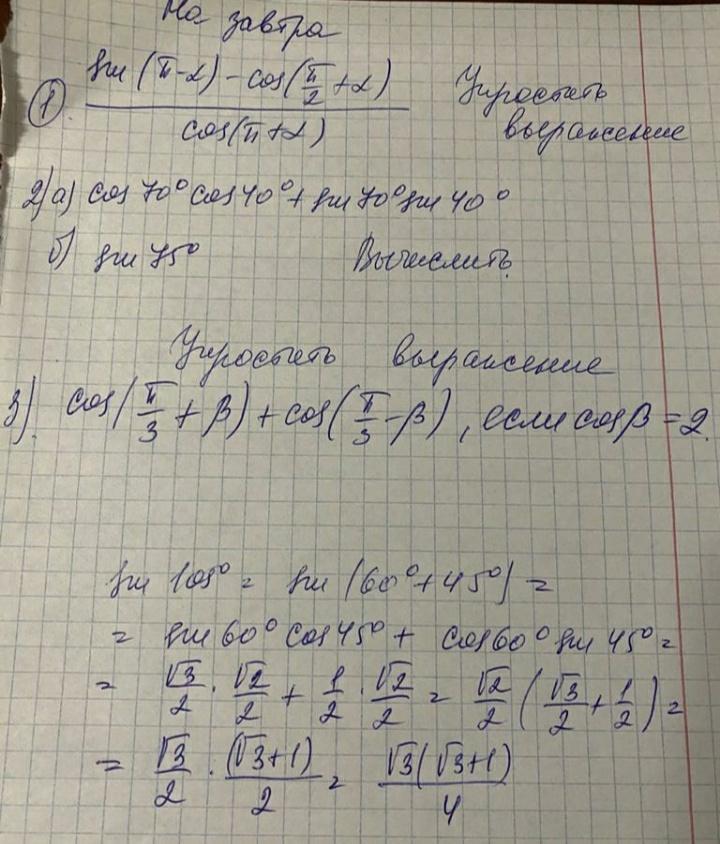 На завтра
1. (sin(π-α) - cos(π/2 + α)) / cos(π+α) Упростить выражение
2) а) cos 70° cos 40° + sin 70° sin 40°
б) sin 75° Вычислить.
Упростить выражение
3). cos(π/3 + β) + cos(π/3 - β), если cosβ = 2.
sin 105° = sin (60° + 45°) =
= sin 60° cos 45° + cos 60° sin 45° =
= √3/2 · √2/2 + 1/2 · √2/2 = √2/2 (√3/2 + 1/2) =
= √3/2 · (√3+1)/2 = √3(√3+1)/4